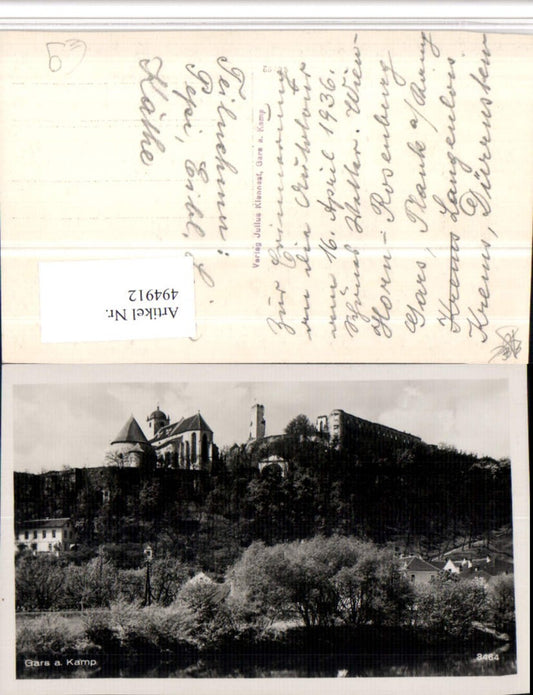 Zur Erinnerung
an die Autotour
am 16. April 1936.
Wien-
Horn - Rosenburg
Gars, Plank a/Kamp
Krems Langenlois
Krems, Dürrnstein
Teilnehmer:
Pepi,
Käthe
Verlag Julius Kiennast, Gars a. Kamp
Artikel Nr.
494912
Gars a. Kamp
3464